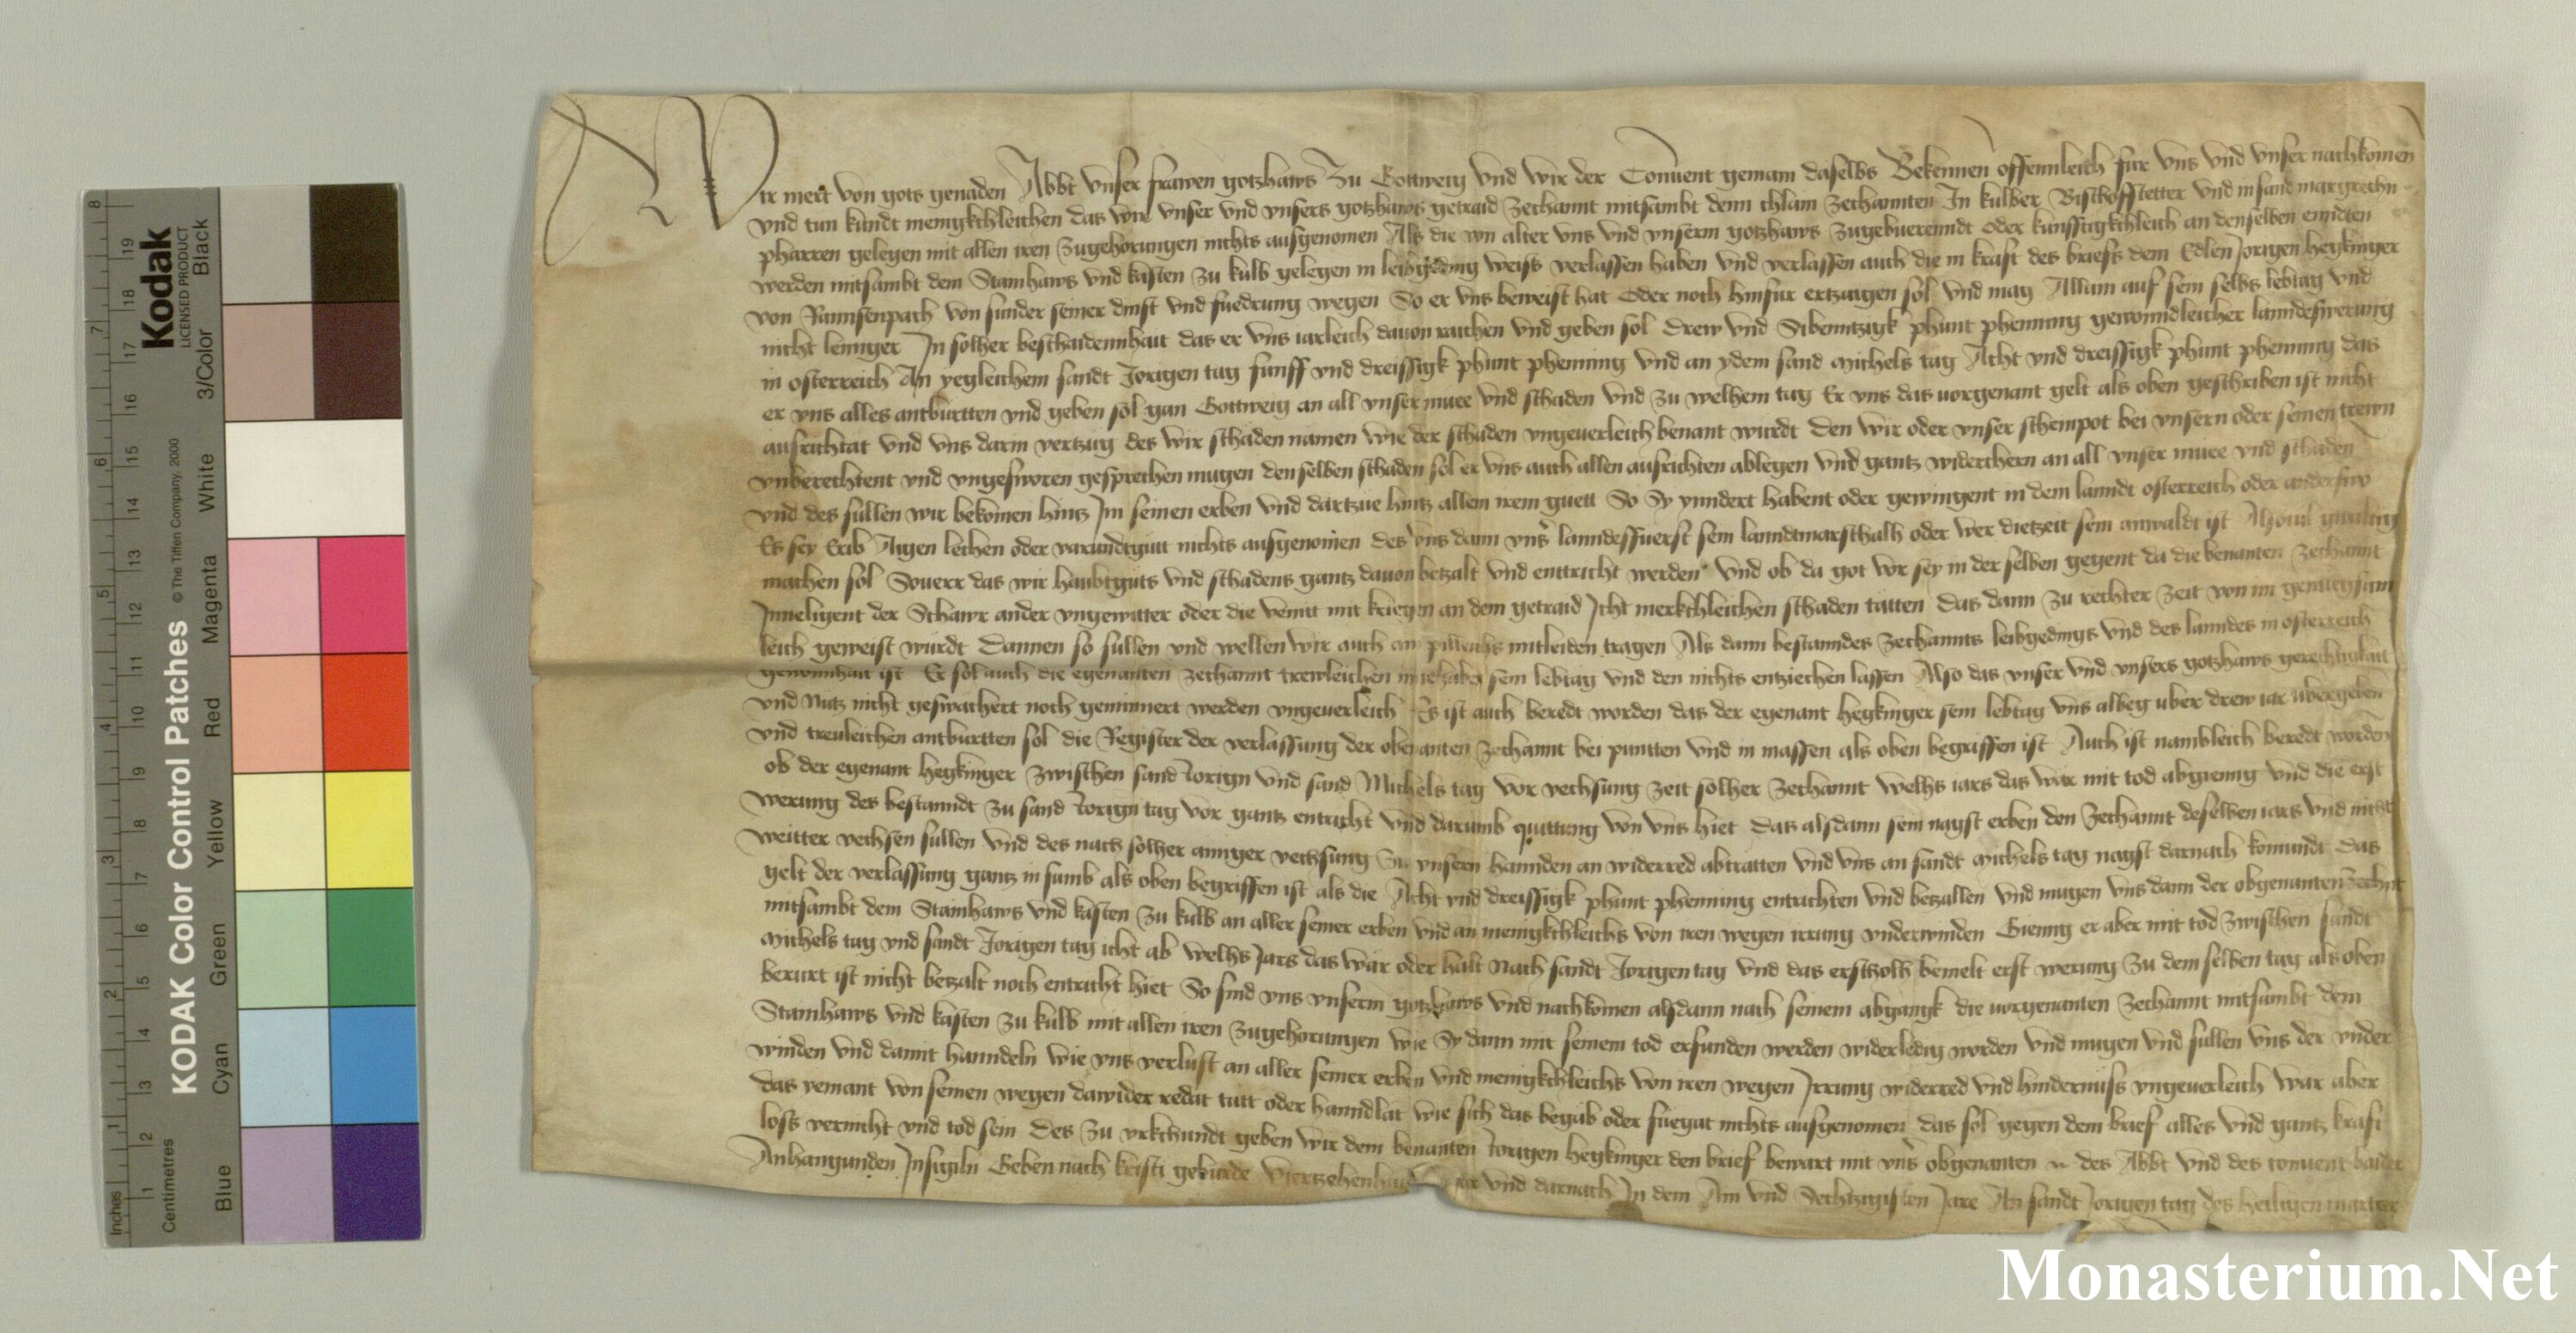 Wir mert von gots genaden Abbt vnser frawen gotzhaws zu Gottweig vnd wir der Conuent gemain daselbs Bekennen offennleich fur vns vnd vnser nachkomen
vnd tun kundt menigkchleichen das wir vnser vnd vnsers gotzhaws getraid zechannt mitsambt denn chlain zechannten In kulber Bischofstetter vnd in sand margrethn
pharren gelegen mit allen iren zugehorungen nichts ausgenomen Als die von alter vns vnd vnserm gotzhaws zugebuerenndt oder kunfftigkchleich an denselben enndten
werden mitsambt dem Stainhaws vnd kasten zu kulb gelegen in leibgeding weis verlassen haben vnd verlassen auch die in kraft des briefs dem Edlen Jorigen hegkinger
von Rannsenpach von sunder seiner dinst vnd fuedrung wegen So er vns beweist hat oder noch hinfur ertzaigen sol vnd mag Allain auf sein selbs lebtag vnd
nicht lennger In solher beschaidennhait das er vns iarleich dauon raichen vnd geben sol drew vnd Sibenntzigk phunt phenning gewonndleicher lanndeswerung
in osterreich An yegleichem sandt Jorigen tag funff vnd dreissigk phunt phenning vnd an ydem sand Michels tag Acht vnd dreissigk phunt phenning das
er vns alles antburtten vnd geben sol gan Gottweig an all vnser muee vnd schaden vnd zu welhem tag Er vns das uorgenant gelt als oben geschriben ist nicht
ausrichtat vnd vns darin vertzug des wir schaden namen wie der schaden vngeuerleich benant wurdt den wir oder vnser scheinpot bei vnsern oder seinen trewn
vnberechtent vnd vngesworen gesprechen mugen den selben schaden sol er vns auch allen ausrichten ablegen vnd gantz widerchern an all vnser muee vnd schaden
vnd des sullen wir bekomen hintz Im seinen erben vnd dartzue hintz allem irem guett So Sy ynndert habent oder gewingent in dem lanndt osterreich oder anderswo
Es sey Erib Aigen lechen oder varundtguet nichts ausgenomen des vns dann vnser lanndesfuerst sein lanndtmarschalh oder wer dietzeit sein anwaldt ist
machen sol Souerr das wir haubtguts vnd schadens gantz dauon betzalt vnd enttricht werden vnd ob da got vor sey in der selben gegent da die benanten zechannt
Inneligent der Schawr ander vngewitter oder die veint mit kriegen an dem getraid Icht merkchleichen schaden tatten das dann zu rechter zeit von im genuegsam
leich geweist wurdt dannen so sullen vnd wellen wir auch ain pilleichs mitleiden tragen Als dann bestanndes zechannts leibgedings vnd des lanndes in osterreich
gewonnhait ist Er sol auch die egenanten zechannt trewleichen innehaben sein lebtag vnd den nichts entziechen lassen Also das vnser vnd vnsers gotzhaws gerechtigkait
vnd Nutz nicht geswachert noch geminnert werden vngeuerleich Es ist auch beredt worden das der egenant hegkinger sein lebtag vns albeg uber drew iar ubergeben
vnd treuleichen antburtten sol die Register der verlassung der obenanten zechannt bei puntten vnd in massen als oben begriffen ist Auch ist nambleich beredt worden
ob der egenant hegkinger zwischen sand Jorign vnd sand Michels tag vor vechsung zeit solher zechannt welhs iars das wär mit tod abgienng vnd die erst
werung des bestanndt zu sand Jorign tag vor gantz entricht vnd darumb quittung von vns hiet das alsdann sein nagst erben den zechannt deselben iars vnd nicht
weitter vechsen sullen vnd des nach solher ainiger vechsung zu vnsern hannden an widerred abtratten vnd vns an sandt Michels tag nagst darnach komundt das
gelt der verlassung gantz in sumb als oben begriffen ist als die Acht vnd dreissigk phunt phenning entrichten vnd betzallen vnd mugen vns dann der obgenanten zechnt
mitsambt dem Stainhaws vnd kasten zu kulb an aller seiner erben vnd an menigkchleichs von iren wegen irrung vnderwinden Gienng er aber mit tod zwischen sandt
Michels tag vnd sandt Jorigen tag icht ab welhs Jars das wär oder halt nach sandt Jorigen tag vnd das bemelt erst werung zu dem selben tag als oben
berurt ist nicht betzalt noch entricht hiet So sind vns vnserm gotzhaws vnd nachkomen alsdann nach seinem abgangk die uorgenanten zechannt mitsambt dem
Stainhaws vnd kasten zu kulb mit allen iren zugehorungen wie Sy dann mit seinem tod erfunden werden widerledig worden vnd mugen vnd sullen vns der vnder
winden vnd damit hanndeln wie vns verlust an aller seiner erben vnd menigkchleichs von iren wegen Irrung widerred vnd hindernuss vngeuerleich wär aber
das yemant von seinen wegen dawider redat tätt oder hanndlat wie sich das begäb oder fuegat nichts ausgenomen das sol gegen dem brief alles vnd gantz kraft
loss vernicht vnd tod sein des zu vrkchundt geben wir dem benanten Jorigen hegkinger den brief bewart mit vnser obgenanten des Abbt vnd des conuent baider
Anhangunden Insigiln Geben nach kristi gepurde Viertzehenhundert iar vnd darnach In dem Ain vnd Sechtzigisten Jare An sandt Jorigen tag des heiligen martrer
KODAK Color Control Patches
© The Tiffen Company, 2000
Kodak
LICENSED PRODUCT
Inches
Centimetres
Blue
Cyan
Green
Yellow
Red
Magenta
White
3/Color
Black
1 2 3 4 5 6 7 8
1 2 3 4 5 6 7 8 9 10 11 12 13 14 15 16 17 18 19
Monasterium.Net